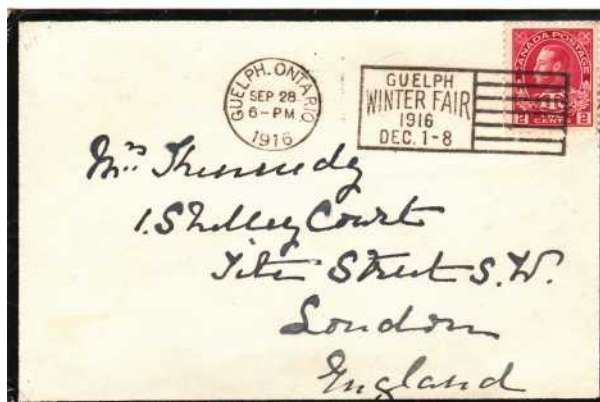 GUELPH. ONTARIO
SEP 28
6-PM
1916
GUELPH
WINTER FAIR
1916
DEC. 1-8
CANADA POSTAGE
2 CENTS 2
Mrs Kennedy
1. Shelley Court
Tite Street S.W.
London
England